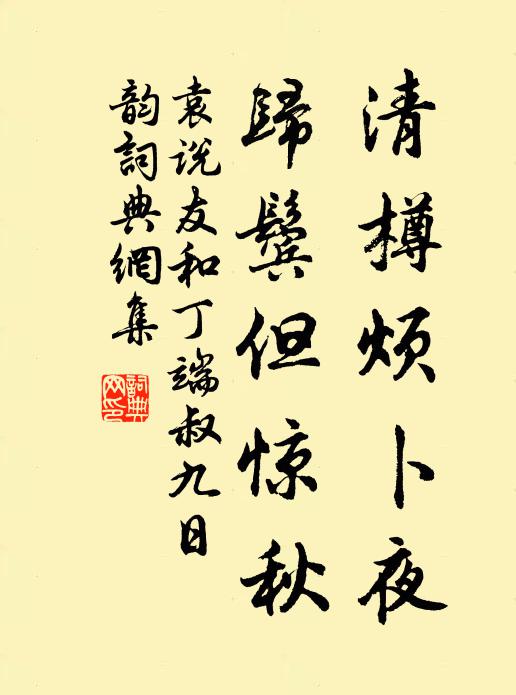 清樽烦卜夜
歸鬓但惊秋
袁说友和丁端叔九日
韵詞典網集
詞典网印